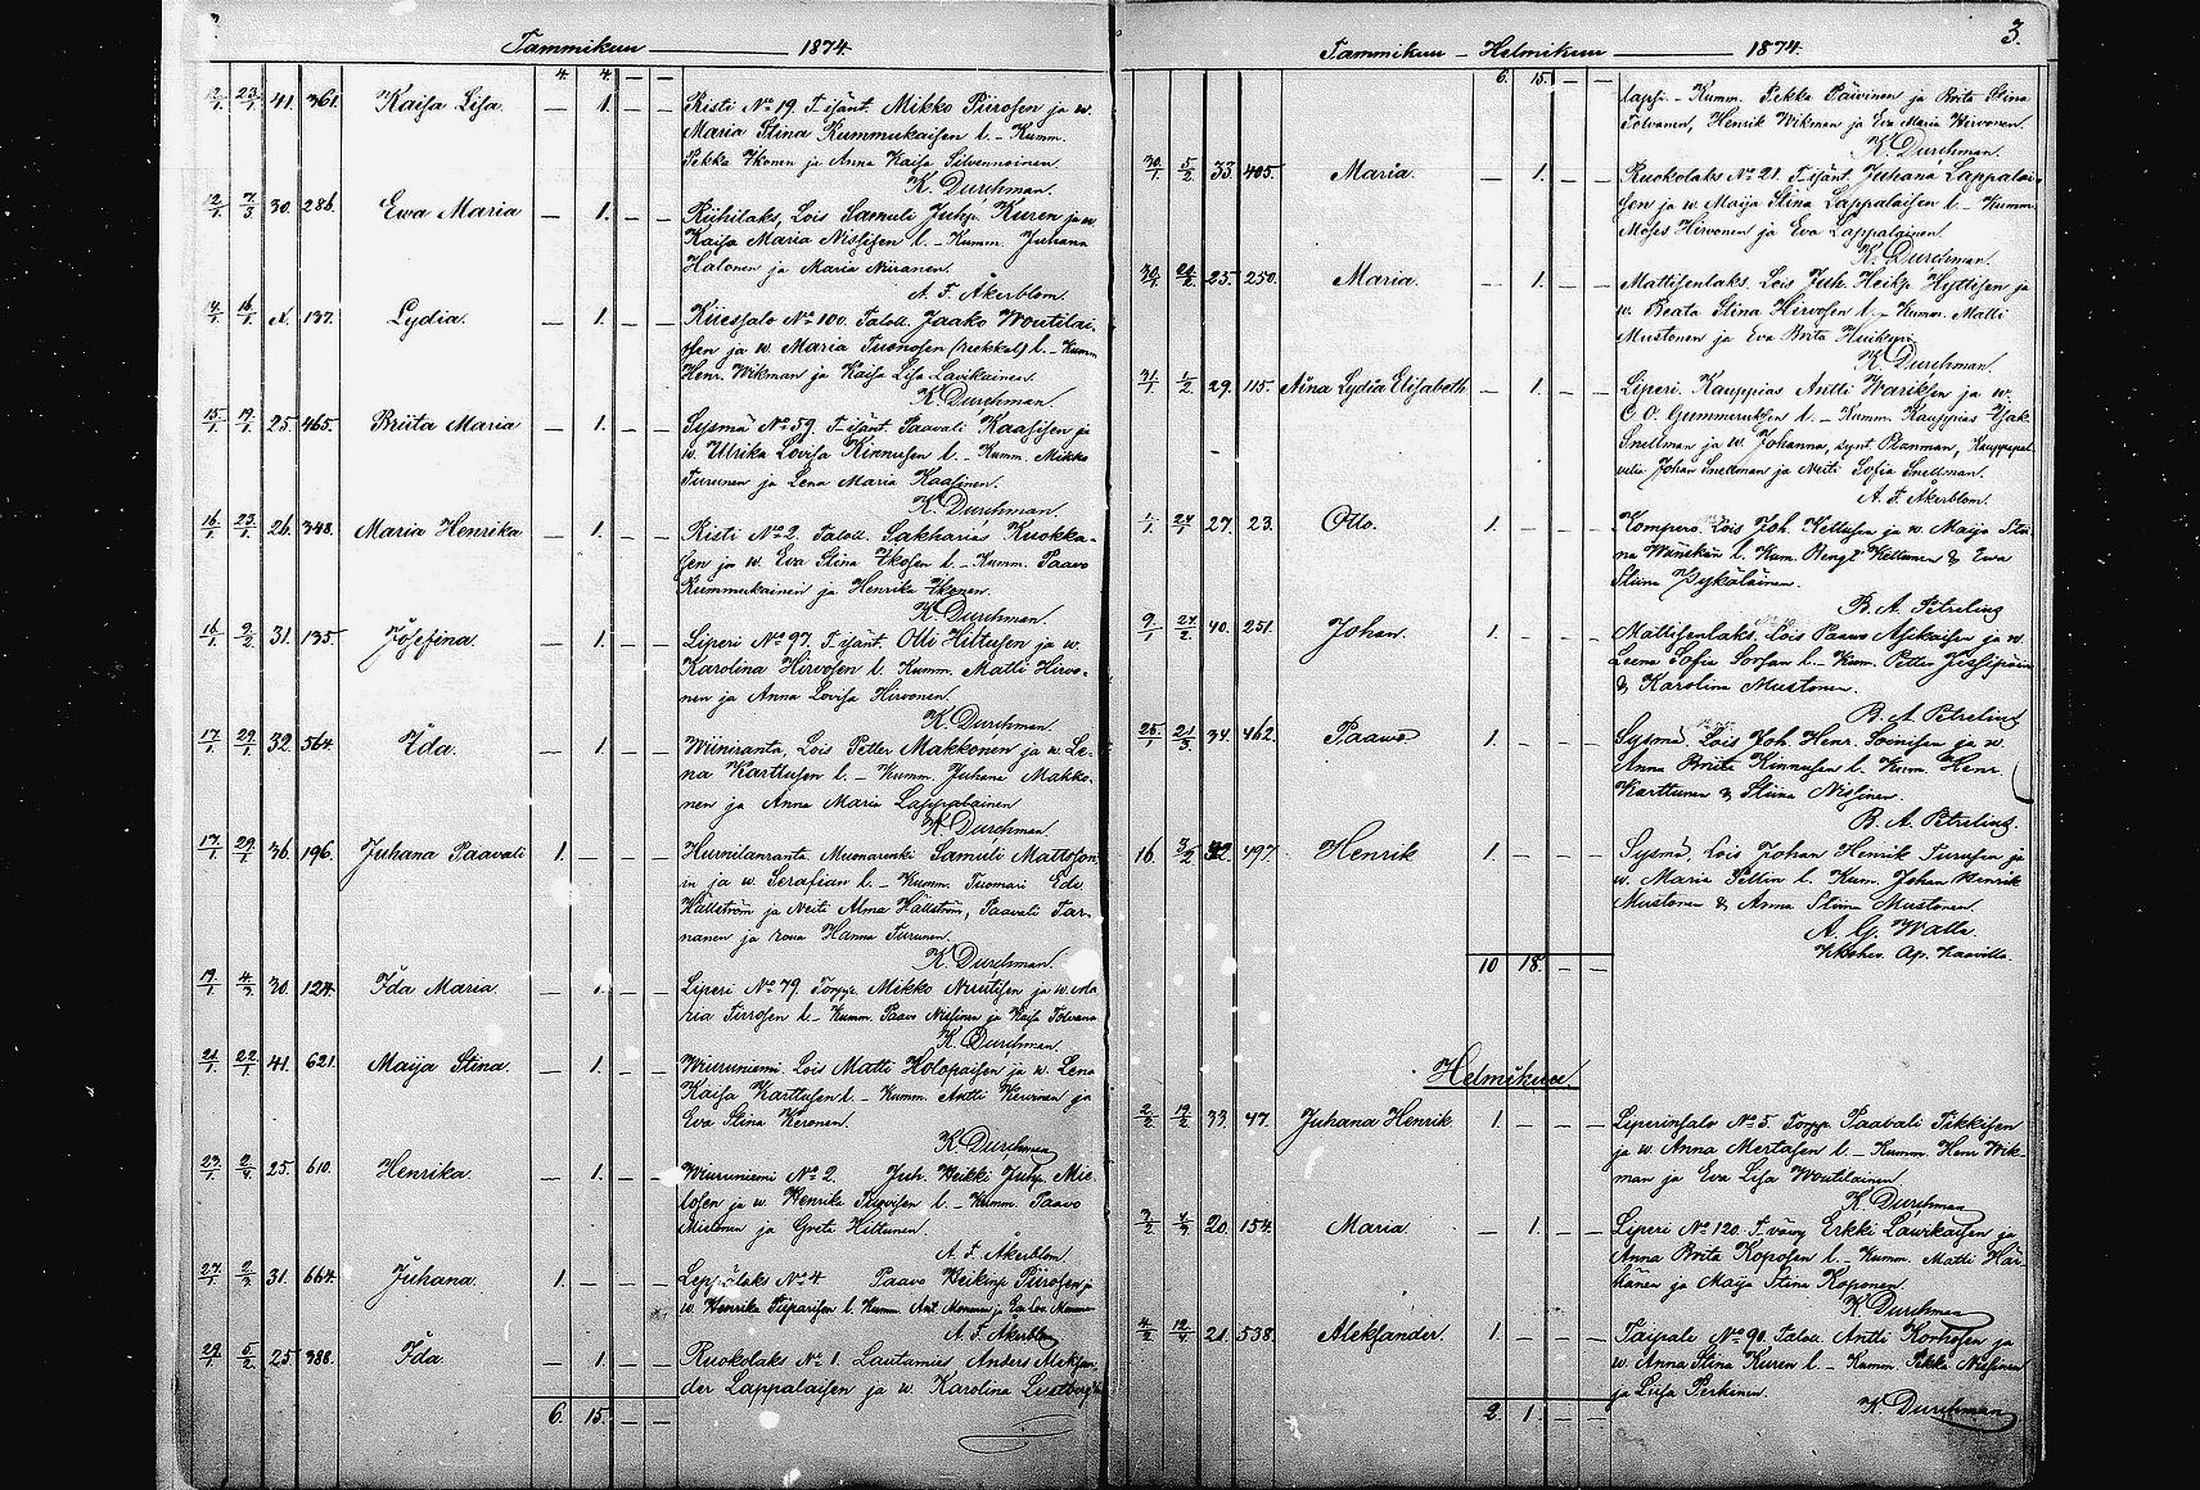 Tammikuu 1874.
4. 4. — —
12/1. 23/1 41. 361. Kaisa Lisa. — 1. Risti No 19. T-isänt. Mikko Piirosen ja w.
Maria Stina Kummukaisen l. – Kumm.
Pekka Ikonen ja Anna Kaisa Silvennoinen.
K. Durchman.
12/1. 7/3 30. 286. Ewa Maria — 1. — — Riihilaks, Lois Samuli Juhp. Kuren ja w.
Kaisa Maria Nissisen l. – Kumm. Juhana
Halonen ja Maria Niiranen.
A. F. Åkerblom.
14/1. 16/1 137. Lydia. — 1. — — Kiiessalo No 100. Taloll. Jaako Woutilai-
sen ja w. Maria Tuonosen l. – Kumm
Henr. Wikman ja Kaisa Lisa Lavikainen.
K. Durchman.
15/1. 19/1 25. 465. Briita Maria — 1. — — Sysmä No 59. T-isänt. Paavali Kaasisen ja
w. Ulrika Lovisa Kinnusen l. – Kumm. Mikko
Turunen ja Lena Maria Kaasinen.
K. Durchman.
16/1. 23/1 26. 348. Maria Henrika — 1. — — Risti No 2. Taloll. Sakharias Kuokka-
sen ja w. Eva Stina Ikosen l. – Kumm. Paavo
Kummukainen ja Henrika Ikonen.
K. Durchman.
16/1. 9/2 31. 135. Josefina. — 1. — — Liperi No 97. T-isänt. Olli Hiltusen ja w.
Karolina Hirvosen l. Kumm. Matti Hirvo-
nen ja Anna Lovisa Hirvonen.
K. Durchman.
17/1. 29/1. 32. 564. Ida. — 1. — — Wiiniranta, Lois Petter Makkonen ja w. Le-
na Karttusen l. – Kumm. Juhana Makko-
nen ja Anna Maria Lappalainen
K. Durchman.
17/1. 29/1 36. 196. Juhana Paavali 1. — — — Samuli Mattsson
in ja w. Serafian l. – Kumm. Tuomari Edv.
Hällström ja Neiti Alma Hällström, Paavali Tar-
nanen ja roua Hanna Turunen.
K. Durchman.
19/1. 4/3. 30. 124. Ida Maria. — 1. — — Liperi No 79. Torpp. Mikko Nuutisen ja w. Ma
ria Tirrosen l. – Kumm. Paavo Nissinen ja Kaisa Tolvanen
K. Durchman.
21/1. 22/1. 41. 621. Maija Stina. — 1. — — Wiuruniemi. Lois Matti Holopaisen ja w. Lena
Kaisa Karttusen l. – Kumm. Antti Kervinen ja
Eva Stina Keronen.
K. Durchman
23/1. 2/4. 25. 610. Henrika. — 1. — — Wiuruniemi No 2. Juh. Heikki Juhp. Mie-
losen ja w. Henrika l. – Kumm. Paavo
Mielonen ja Greta Hiltunen.
A. F. Åkerblom
27/1. 2/3 31. 664. Juhana. 1. — — — Leppälaks No 4. Paavo Heikinp Piirosen ja
w. Henrika Tiiparisen l. Kumm. Ant. Mononen ja Eva Lov. Mononen
A. F. Åkerblom
29/1. 5/2. 25. 388. Ida. — 1. — — Ruokolaks No 1. Lautamies Anders Aleksan-
der Lappalaisen ja w. Karolina
6. 15. — —
3.
Tammikuu – Helmikuu 1874.
6. 15. — —
lapsi. – Kumm. Pekka Päivinen ja Brita Stina
Tolvanen, Henrik Wikman ja Eva Maria Hirvonen.
K. Durchman.
30/1. 5/2. 33. 405. Maria. — 1. — — Ruokolaks No 21. T-isänt. Juhana Lappalai-
sen ja w. Maija Stina Lappalaisen l. – Kumm.
Moses Hirvonen ja Eva Lappalainen.
K. Durchman.
30/1. 25. 250. Maria. — 1. — — Mattisenlaks. Lois Juh. Heikp. Hyttisen ja
w. Beata Stina Hirvosen l. – Kumm. Matti
Mustonen ja Eva Brita
K. Durchman.
31/1. 1/2 29. 115. Aina Lydia Elisabeth — 1. — — Liperi. Kauppias Antti Wariksen ja w.
C. O. Gummeruksen l. – Kumm. Kauppias Isak
Snellman ja w. Johanna, synt. Planman, Kauppapal-
velia Johan Snellman ja Neiti Sofia Snellman.
A. F. Åkerblom.
1/1. 24/1 27. 23. Otto. 1. — — — Kompero. Lois Joh. Kettusen ja w. Maija Stii-
na l. Kum. Bengt Kettunen & Ewa
Stiina Pykäläinen.
B. A. Petrelius
9/1 27/2. 40. 251. Johan. 1. — — — Mattisenlaks. Lois Paavo Asikaisen ja w.
Leena Sofia Sorsan l. – Kum. Petter
& Karolina Mustonen.
B. A. Petrelius
25/1 21/3 34. 462. Paawo. 1. — — — Sysmä. Lois Joh. Henr. Soinisen ja w.
Anna Brita Kinnusen l. Kum. Henr.
Karttunen & Stiina Nissinen.
B. A. Petrelius.
16. 3/2 497. Henrik 1. — — — Sysmä. Lois Johan Henrik Turusen ja
w. Maria Pellin l. Kum. Johan Henrik
Mustonen & Anna Stiina Mustonen.
A. G. Walle.
Ap. Kaavilla.
10 18. — —
Helmikuu.
2/2. 19/2 33. 47. Juhana Henrik. 1. — — — Liperinsalo No 5. Torpp. Paavali Pikkisen
ja w. Anna Mertasen l. – Kumm. Henr Wik-
man ja Eva Lisa Woutilainen.
K. Durchman
3/2. 4/3. 20. 154. Maria. — 1. — — Liperi No 120. T-vävy Erkki Laurikaisen ja
Anna Brita Koposen l. – Kumm. Matti Här-
känen ja Maija Stina Koponen.
K. Durchman
4/2 12/4 21. 538. Aleksander. 1. — — — Taipale No 90. Taloll. Antti Korhosen ja
w. Anna Stina Kuren l. – Kumm. Pekka Nissinen
ja Liisa Perkinen.
K. Durchman
2. 1. — —